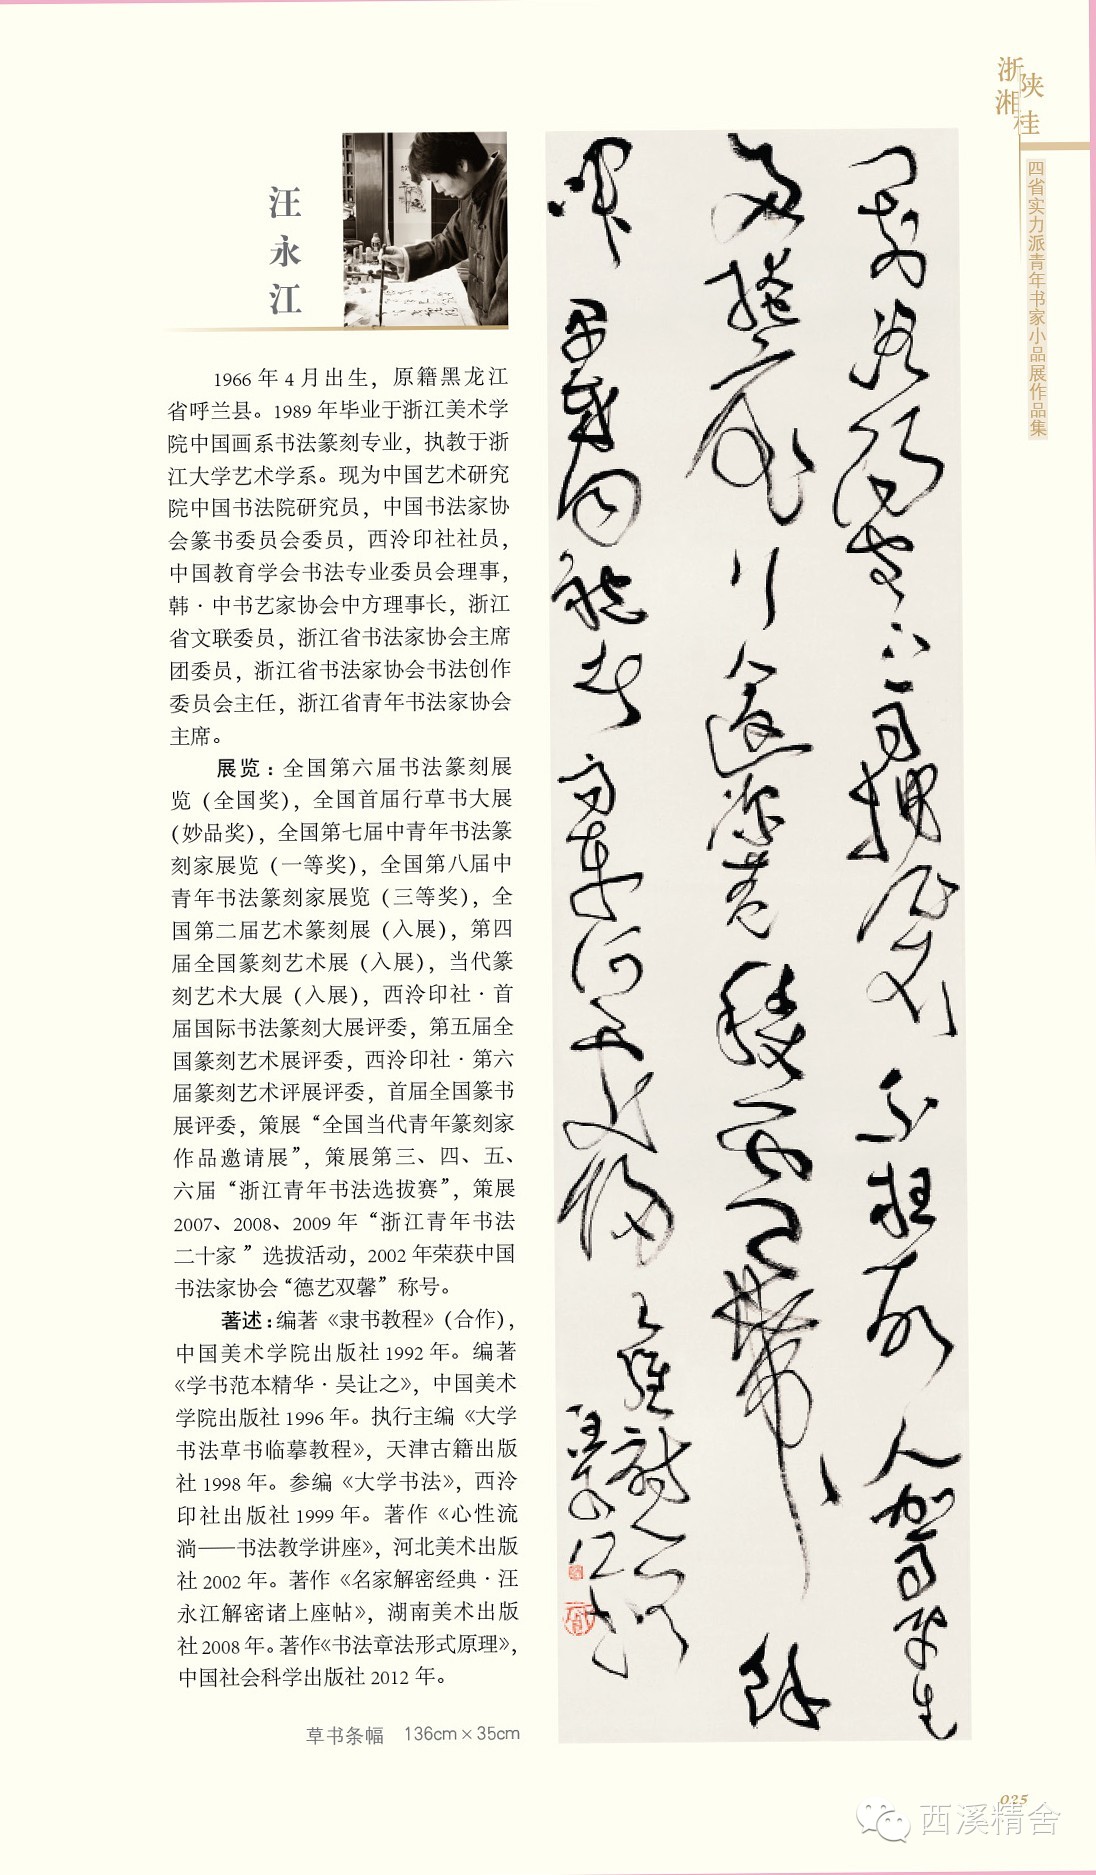 浙陕
湘桂
四省实力派青年书家小品展作品集
汪永江
1966 年 4 月出生，原籍黑龙江
省呼兰县。1989 年毕业于浙江美术学
院中国画系书法篆刻专业，执教于浙
江大学艺术学系。现为中国艺术研究
院中国书法院研究员，中国书法家协
会篆书委员会委员，西泠印社社员，
中国教育学会书法专业委员会理事，
韩·中书艺家协会中方理事长，浙江
省文联委员，浙江省书法家协会主席
团委员，浙江省书法家协会书法创作
委员会主任，浙江省青年书法家协会
主席。
展览：全国第六届书法篆刻展
览（全国奖），全国首届行草书大展
（妙品奖），全国第七届中青年书法篆
刻家展览（一等奖），全国第八届中
青年书法篆刻家展览（三等奖），全
国第二届艺术篆刻展（入展），第四
届全国篆刻艺术展（入展），当代篆
刻艺术大展（入展），西泠印社·首
届国际书法篆刻大展评委，第五届全
国篆刻艺术展评委，西泠印社·第六
届篆刻艺术评展评委，首届全国篆书
展评委，策展“全国当代青年篆刻家
作品邀请展”，策展第三、四、五、
六届“浙江青年书法选拔赛”，策展
2007、2008、2009 年“浙江青年书法
二十家 ”选拔活动，2002 年荣获中国
书法家协会“德艺双馨”称号。
著述：编著《隶书教程》（合作），
中国美术学院出版社 1992 年。编著
《学书范本精华·吴让之》，中国美术
学院出版社 1996 年。执行主编《大学
书法草书临摹教程》，天津古籍出版
社 1998 年。参编《大学书法》，西泠
印社出版社 1999 年。著作《心性流
淌——书法教学讲座》，河北美术出版
社 2002 年。著作《名家解密经典·汪
永江解密诸上座帖》，湖南美术出版
社 2008 年。著作《书法章法形式原理》，
中国社会科学出版社 2012 年。
門前洛陽客下馬拂征衣不枉故人駕平生
多掩扉行人返深巷積雪帶餘
暉早歲同袍者高車何處歸 王維詩一首
汪永江書
草书条幅 136cm×35cm
025
西溪精舍